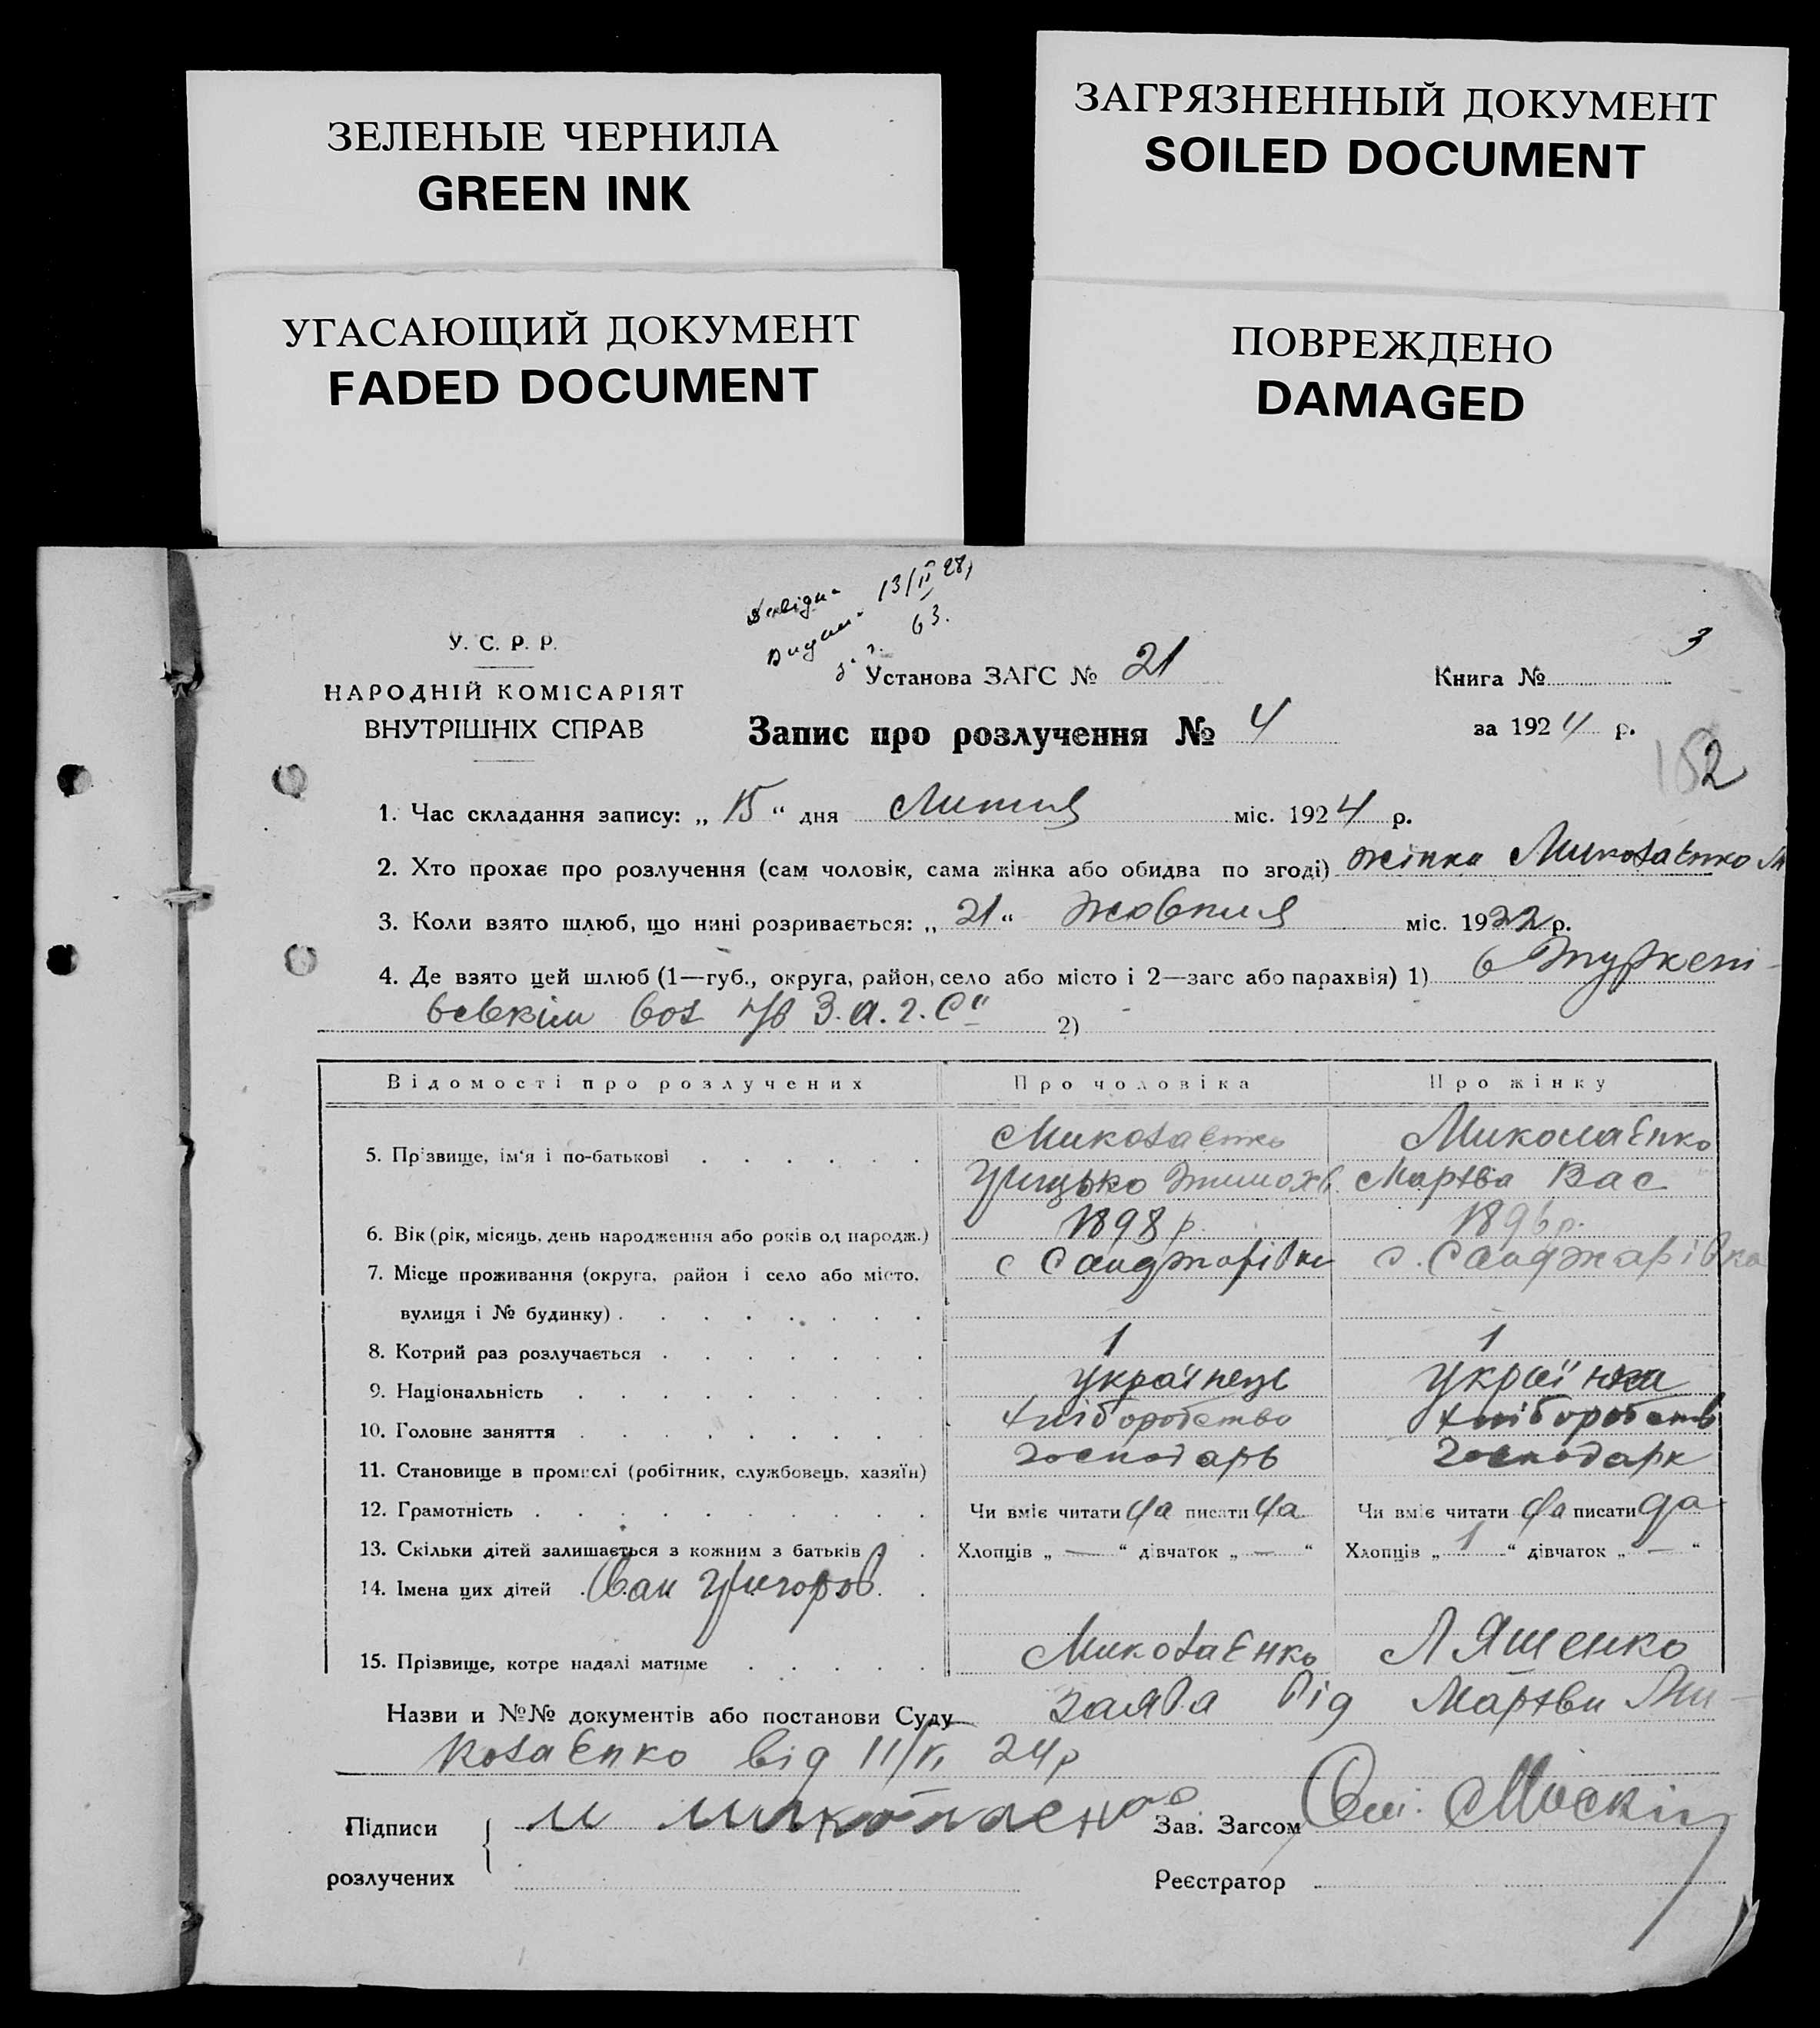 ЗЕЛЕНЫЕ ЧЕРНИЛА
GREEN INK
ЗАГРЯЗНЕННЫЙ ДОКУМЕНТ
SOILED DOCUMENT
УГАСАЮЩИЙ ДОКУМЕНТ
FADED DOCUMENT
ПОВРЕЖДЕНО
DAMAGED
13/II 28
63.
3
У. С. Р. Р.
НАРОДНІЙ КОМІСАРІЯТ
ВНУТРІШНІХ СПРАВ
Установа ЗАГС № 21
Книга №
Запис про розлучення № 4
за 1924 р.
152
1. Час складання запису: „ 15 “ дня Лютня міс. 1924 р.
2. Хто прохає про розлучення (сам чоловік, сама жінка або обидва по згоді) жінка Миколаєнко М
3. Коли взято шлюб, що нині розривається: „ 21 “ жовтня міс. 1922 р.
4. Де взято цей шлюб (1—губ., округа, район, село або місто і 2—загс або парахвія) 1) в
вол п/в З.А.Г.С. 2)
Відомості про розлучених
Про чоловіка
Про жінку
5. Прізвище, ім‘я і по-батькові
Миколаєнко Миколаєнко
Грицько Тимохв. Мархва Вас
6. Вік (рік, місяць, день народження або років од народж.) 1898 р. 1896 р.
7. Місце проживання (округа, район і село або місто, с Санджарівка с. Санджарівка
вулиця і № будинку)
8. Котрий раз розлучається 1 1
9. Національність українець українка
10. Головне заняття хліборобство хліборобств
11. Становище в промислі (робітник, службовець, хазяїн) господарь господарк
12. Грамотність Чи вміє читати да писати да Чи вміє читати да писати да
13. Скільки дітей залишається з кожним з батьків Хлопців „ — “ дівчаток „ — “ Хлопців „ 1 “ дівчаток „ — “
14. Імена цих дітей Іван Григоров.
15. Прізвище, котре надалі матиме Миколаєнко Ляшенко
Назви и №№ документів або постанови Суду заява від Мархви Ми-
колаєнко від 11/II 24р
Підписи
розлучених
М Миколаєнко
Зав. Загсом
Реєстратор